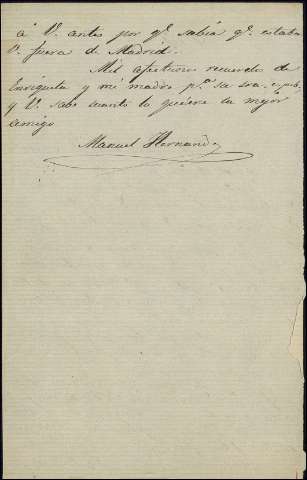 á V. antes por qᵉ sabia qᵉ estaba
V. fuera de Madrid.
Mil afectuosos recuerdos de
Enriqueta y mi madre pᵃ su sra. esposa,
y V. sabe cuanto le quiere su mejor
amigo
Manuel Hernandez